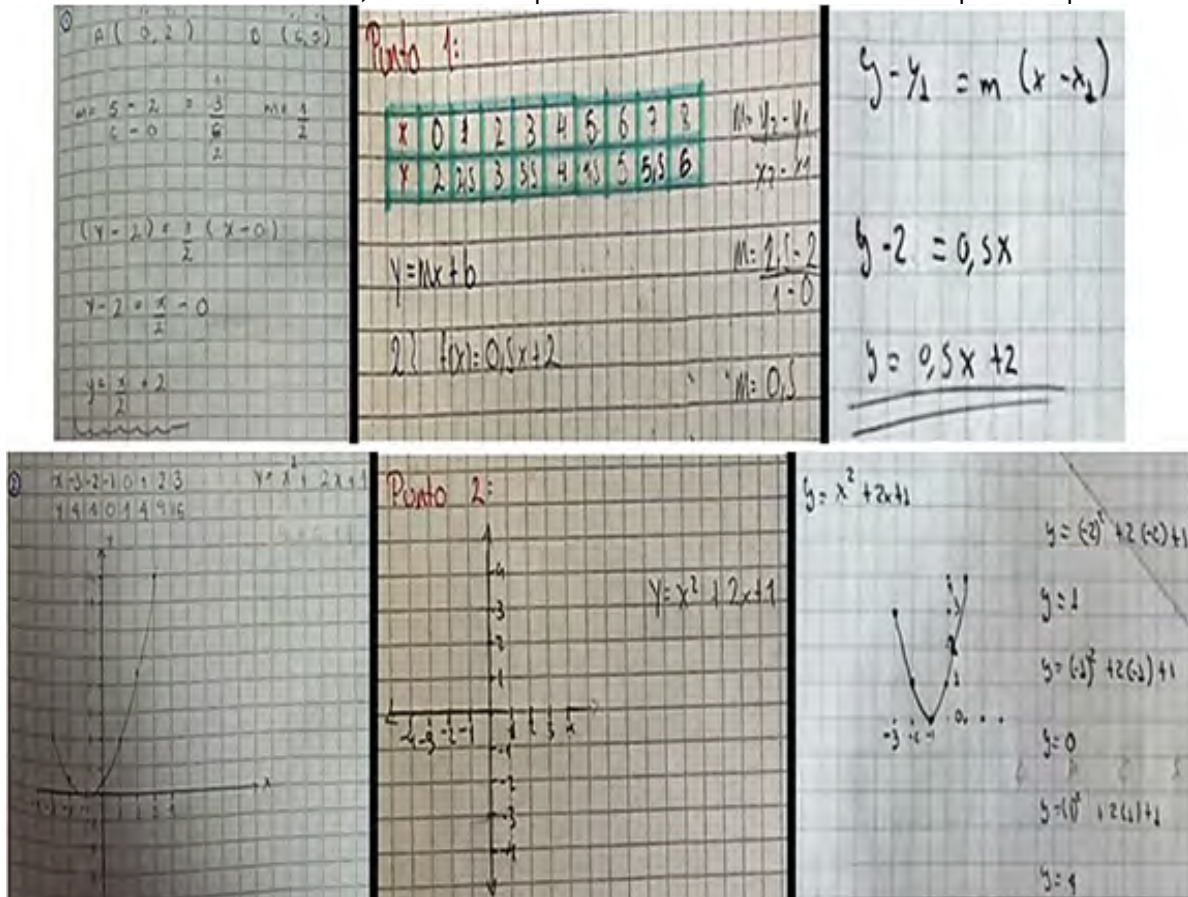 ① A ( 0, 2 ) B ( 6, 5 )
m = 5 - 2 = 3 m = 1
6 - 0 6 2
2
( y - 2 ) = 1 ( x - 0 )
2
y - 2 = x - 0
2
y = x + 2
2
Punto 1:
x 0 1 2 3 4 5 6 7 8
y 2 2,5 3 3,5 4 4,5 5 5,5 6
m = y₂ - y₁
x₂ - x₁
y = mx + b
m = 2,5 - 2
1 - 0
f(x) = 0,5x + 2
m = 0,5
y - y₁ = m (x - x₁)
y - 2 = 0,5x
y = 0,5x + 2
② x -3 -2 -1 0 1 2 3
y 4 1 0 1 4 9 16
y = x² + 2x + 1
y
x
Punto 2:
4
3
2
1
-4 -3 -2 -1 1 2 3 4
-1
-2
-3
-4
y = x² + 2x + 1
y = x² + 2x + 1
y = (-2)² + 2(-2) + 1
y = 1
y = (-1)² + 2(-1) + 1
y = 0
y = (1)² + 2(1) + 1
y = 4
3
2
1
-3 -2 -1 0